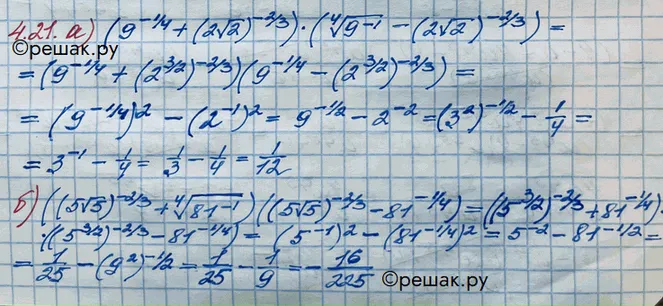 4.21. а) (9^{-1/4} + (2√2)^{-2/3}) · (∜9^{-1} - (2√2)^{-2/3}) =
©решак.ру
= (9^{-1/4} + (2^{3/2})^{-2/3})(9^{-1/4} - (2^{3/2})^{-2/3}) =
= (9^{-1/4})^2 - (2^{-1})^2 = 9^{-1/2} - 2^{-2} = (3^2)^{-1/2} - 1/4 =
= 3^{-1} - 1/4 = 1/3 - 1/4 = 1/12
б) ((5√5)^{-2/3} + ∜81^{-1})((5√5)^{-2/3} - 81^{-1/4}) = ((5^{3/2})^{-2/3} + 81^{-1/4}) ·
· ((5^{3/2})^{-2/3} - 81^{-1/4}) = (5^{-1})^2 - (81^{-1/4})^2 = 5^{-2} - 81^{-1/2} =
= 1/25 - (9^2)^{-1/2} = 1/25 - 1/9 = - 16/225
©решак.ру